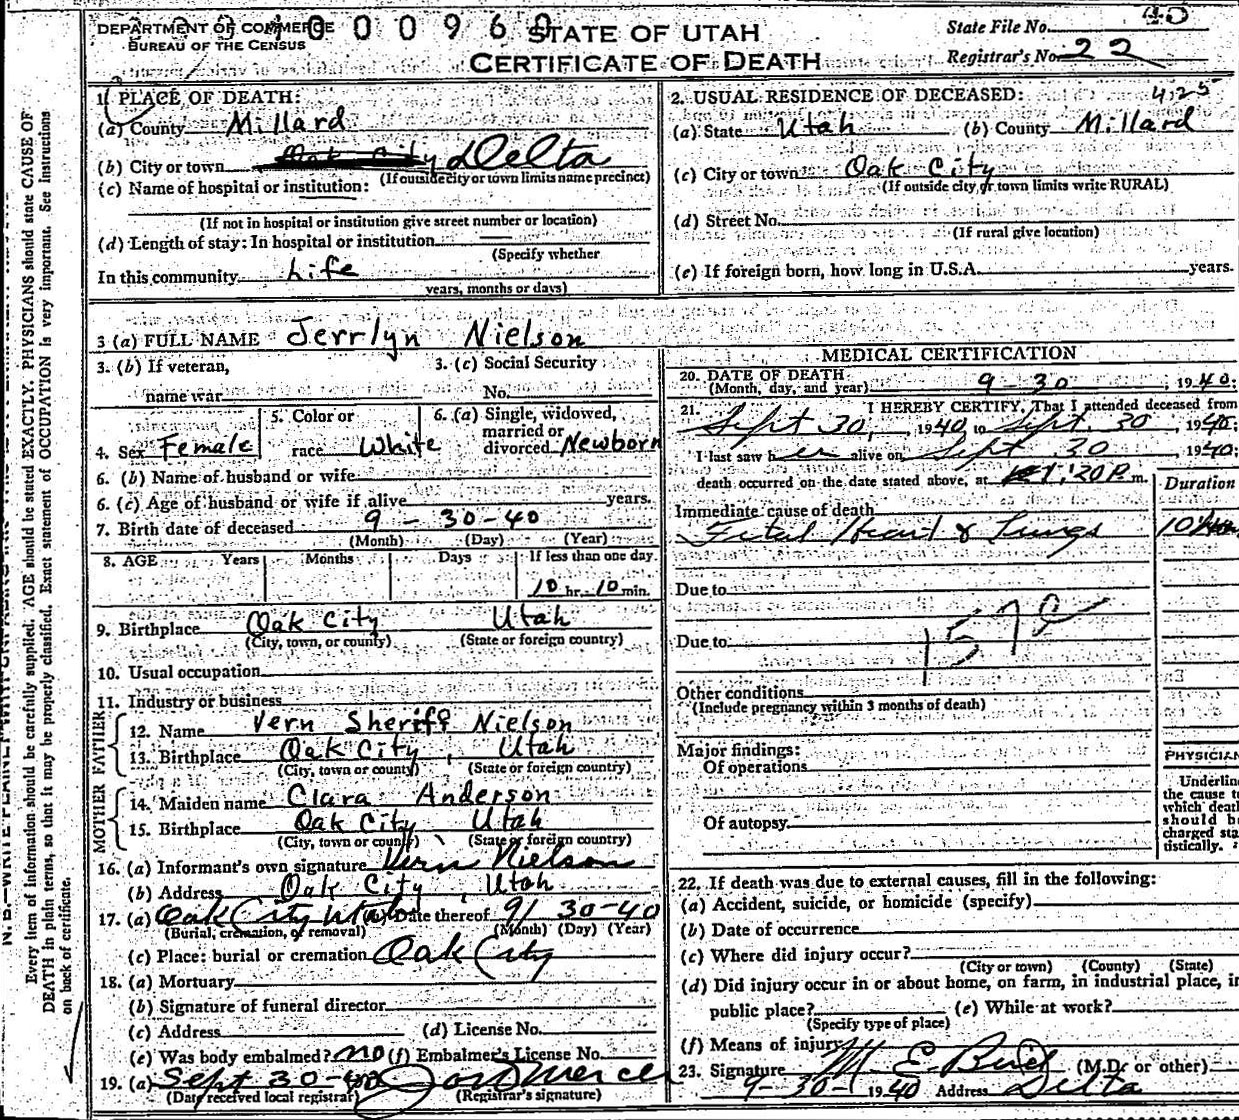 DEPARTMENT OF COMMERCE
BUREAU OF THE CENSUS
STATE OF UTAH
CERTIFICATE OF DEATH
State File No. 40
Registrar's No. 22
4.25
1. PLACE OF DEATH:
(a) County Millard
(b) City or town Oak City Delta
(If outside city or town limits name precinct)
(c) Name of hospital or institution:
(If not in hospital or institution give street number or location)
(d) Length of stay: In hospital or institution
(Specify whether
In this community Life
years, months or days)
2. USUAL RESIDENCE OF DECEASED:
(a) State Utah (b) County Millard
(c) City or town Oak City
(If outside city or town limits write RURAL)
(d) Street No.
(If rural give location)
(e) If foreign born, how long in U.S.A. years.
3 (a) FULL NAME Jerrlyn Nielson
3. (b) If veteran, name war
3. (c) Social Security No.
4. Sex Female
5. Color or race White
6. (a) Single, widowed, married or divorced Newborn
6. (b) Name of husband or wife
6. (c) Age of husband or wife if alive years.
7. Birth date of deceased 9 - 30 - 40
(Month) (Day) (Year)
8. AGE Years Months Days If less than one day
10 hr. 10 min.
9. Birthplace Oak City Utah
(City, town, or county) (State or foreign country)
10. Usual occupation
11. Industry or business
FATHER
12. Name Vern Sheriff Nielson
13. Birthplace Oak City, Utah
(City, town or county) (State or foreign country)
MOTHER
14. Maiden name Clara Anderson
15. Birthplace Oak City Utah
(City, town or county) (State or foreign country)
16. (a) Informant's own signature Vern Nielson
(b) Address Oak City, Utah
17. (a) Oak City Utah (b) Date thereof 9/ 30-40
(Burial, cremation, or removal) (Month) (Day) (Year)
(c) Place: burial or cremation Oak City
18. (a) Mortuary
(b) Signature of funeral director
(c) Address (d) License No.
(e) Was body embalmed? no (f) Embalmer's License No.
19. (a) Sept 30-40
(Date received local registrar) (Registrar's signature)
MEDICAL CERTIFICATION
20. DATE OF DEATH
(Month, day, and year) 9-30, 1940;
21. I HEREBY CERTIFY, That I attended deceased from
Sept 30, 1940 to Sept. 30 1940;
I last saw her alive on Sept 30 1940;
death occurred on the date stated above, at 1:20 P. m.
Duration
Immediate cause of death
Fetal Heart & Lungs 10
Due to
Due to
Other conditions
(Include pregnancy within 3 months of death)
Major findings:
Of operations
Of autopsy
PHYSICIAN
Underline
the cause to
which death
should be
charged sta
tistically.
22. If death was due to external causes, fill in the following:
(a) Accident, suicide, or homicide (specify)
(b) Date of occurrence
(c) Where did injury occur?
(City or town) (County) (State)
(d) Did injury occur in or about home, on farm, in industrial place, in
public place? (e) While at work?
(Specify type of place)
(f) Means of injury
23. Signature M E Bird (M.D. or other)
9-30-1940 Address Delta
Every item of information should be carefully supplied. AGE should be stated EXACTLY. PHYSICIANS should state CAUSE OF
DEATH in plain terms, so that it may be properly classified. Exact statement of OCCUPATION is very important. See instructions
on back of certificate.